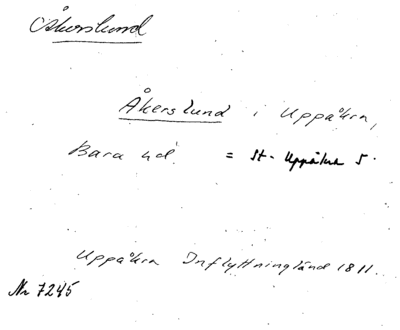 Åkerslund
Åkerslund i Uppåkra,
Bara hd. = St. Uppåkra S.
Uppåkra Inflyttningländ 1811.
Nr 7245